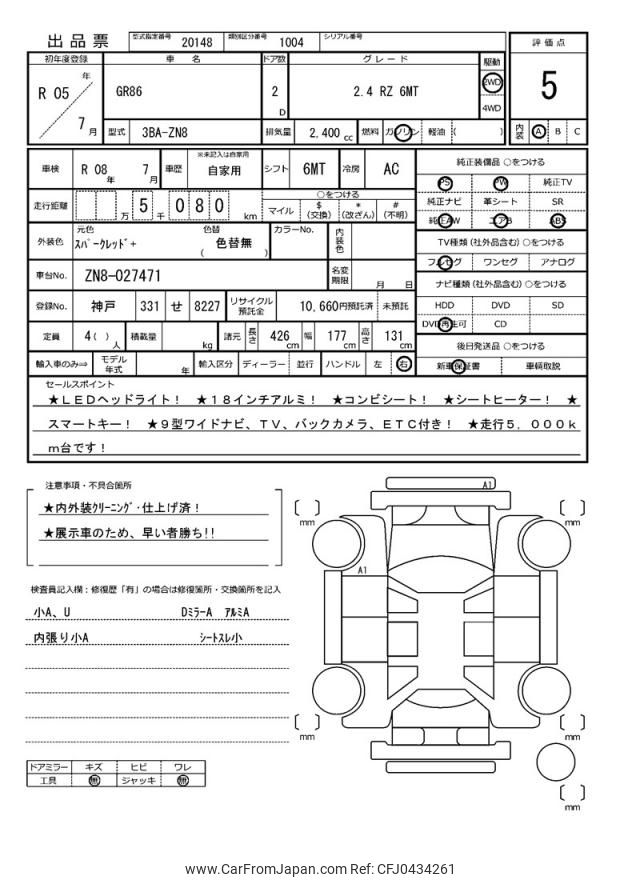 出品票 型式指定番号 20148 類別区分番号 1004 シリアル番号
評価点
5
内装 A B C
初年度登録 車名 ドア数 グレード 駆動
R 05 年 7 月 GR86 2 D 2.4 RZ 6MT 2WD 4WD
型式 3BA-ZN8 排気量 2,400 cc 燃料 ガソリン 軽油 ( )
車検 R 08 年 7 月 車歴 ※未記入は自家用 自家用 シフト 6MT 冷房 AC
走行距離 万 5 千 0 8 0 km ○をつける マイル $ (交換) * (改ざん) # (不明)
外装色 元色 ｽﾊﾟｰｸﾚｯﾄﾞ+ 色替 ( 色替無 ) カラーNo. 内装色
車台No. ZN8-027471 名変期限 月 日
登録No. 神戸 331 せ 8227 リサイクル預託金 10,660円預託済 未預託
定員 4( )人 積載量 kg 諸元 長さ 426 cm 幅 177 cm 高さ 131 cm
輸入車のみ⇒ モデル年式 年 輸入区分 ディーラー 並行 ハンドル 左 右
純正装備品 ○をつける
PS PW 純正TV
純正ナビ 革シート SR
純正AW エアB ABS
TV種類 (社外品含む) ○をつける
フルセグ ワンセグ アナログ
ナビ種類 (社外品含む) ○をつける
HDD DVD SD
DVD再生可 CD
後日発送品 ○をつける
新車保証書 車輌取説
セールスポイント
★ＬＥＤヘッドライト！ ★１８インチアルミ！ ★コンビシート！ ★シートヒーター！ ★
スマートキー！ ★９型ワイドナビ、ＴＶ、バックカメラ、ＥＴＣ付き！ ★走行５，０００ｋ
ｍ台です！
注意事項・不具合箇所
★内外装ｸﾘｰﾆﾝｸﾞ・仕上げ済！
★展示車のため、早い者勝ち!!
検査員記入欄：修復歴「有」の場合は修復箇所・交換箇所を記入
小A、U DﾐﾗｰA ｱﾙﾐA
内張り小A ｼｰﾄｽﾚ小
ドアミラー キズ ヒビ ワレ
工具 無 ジャッキ 無
A1
A1
mm
mm
mm
mm
mm
www.CarFromJapan.com Ref: CFJ0434261